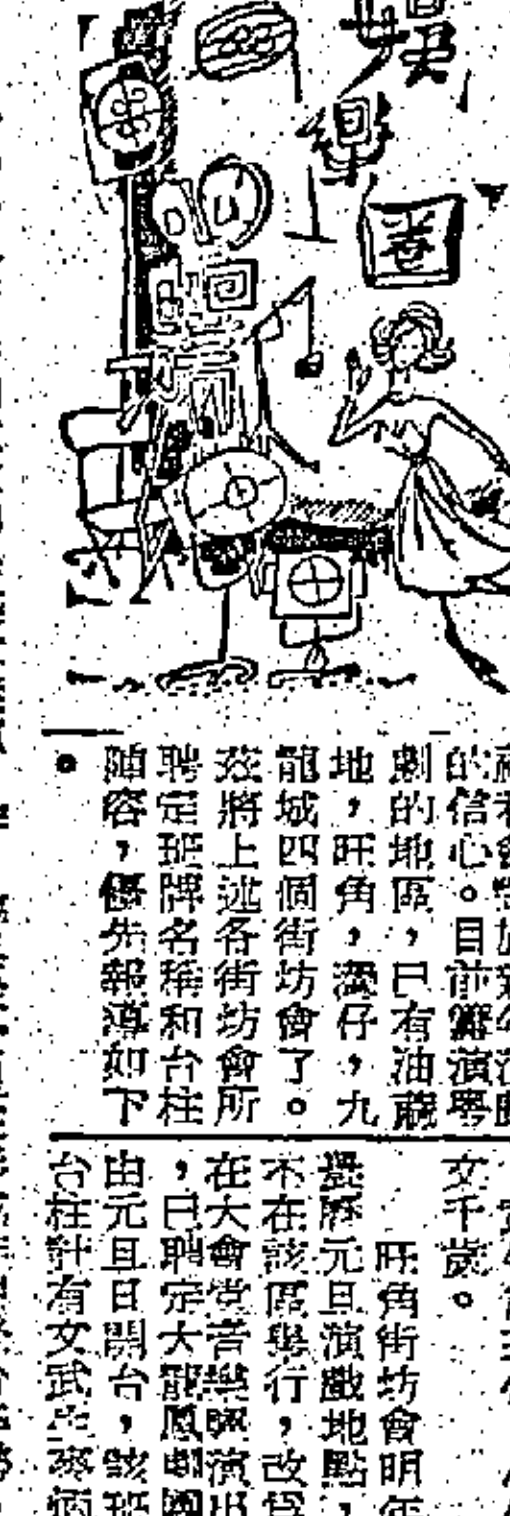 娛樂圈
的信心。目前籌演粵
劇的地區,已有油蔴
地,旺角,灣仔,九
龍城四個街坊會了。
茲將上述各街坊會所
聘定班牌名稱和台柱
陣容,優先報導如下
。
女千歲。
旺角街坊會明年
農曆元旦演戲地點,
不在該區舉行,改為
在大會堂音樂廳演出
,已聘定大龍鳳劇團
由元旦日開台,該班
台柱計有女武生麥炳